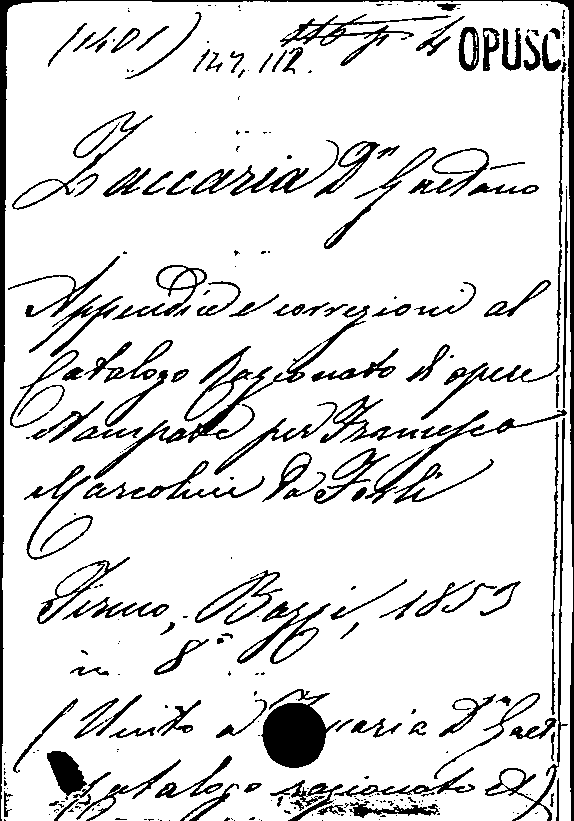 (1401)
147, 112. 4 OPUSC.
Zaccaria Dn Gaetano
Appendice e correzioni al
Catalogo Ragionato di opere
stampate per Francesco
Marcolini da Forlì
Fermo, Bazzi, 1853
in 8°
(Unito a Zaccaria Dn Gaet
Catalogo ragionato &)